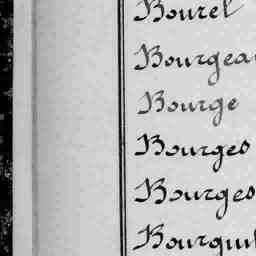 Bourel
Bourgea
Bourge
Bourges
Bourges
Bourgui